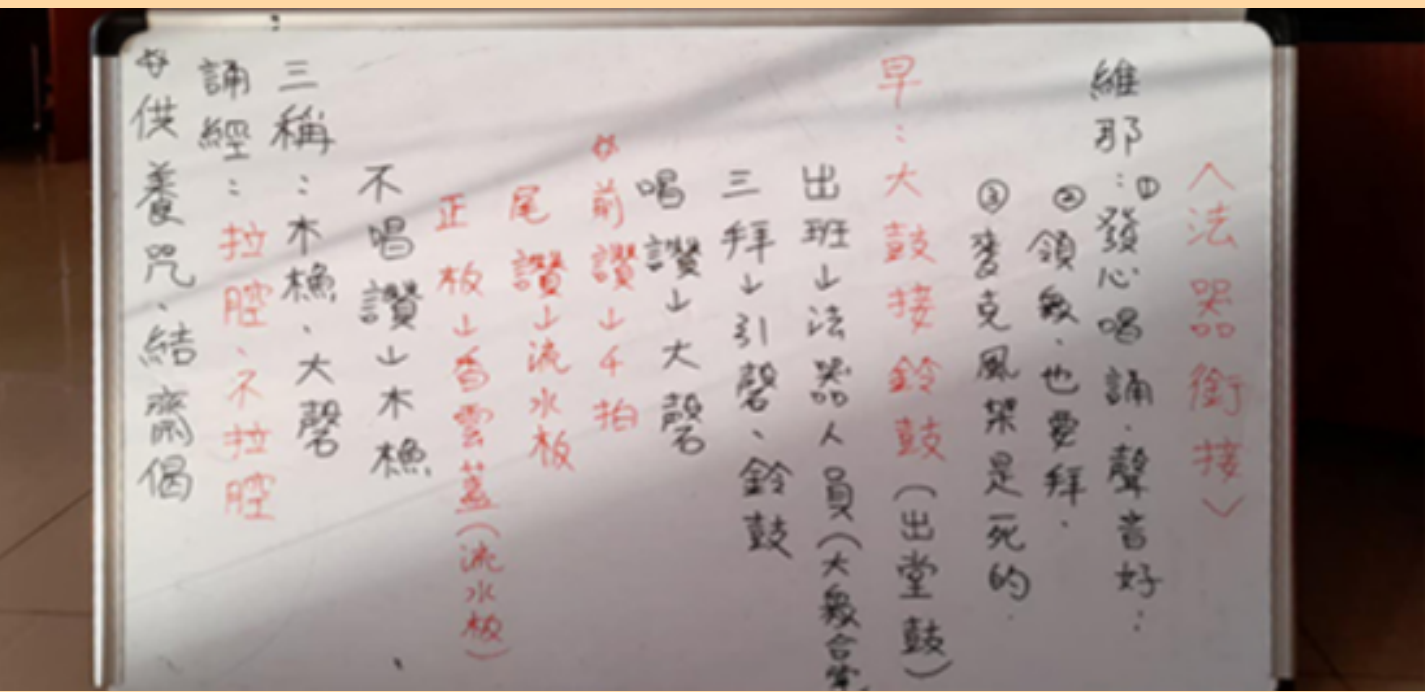 〈法器銜接〉
維那：①發心唱誦．聲音好：
②領眾．也要拜．
③麥克風架是死的．
早：大鼓接鈴鼓（出堂鼓）
出班↓法器人員（大眾合掌
三拜↓引磬、鈴鼓
唱讚↓大磬
前讚↓4拍
尾讚↓流水板
正板↓香雲蓋（流水板）
不唱讚↓木橅
三稱：木橅、大磬
誦經：拉腔、不拉腔
供養咒、結齋偈